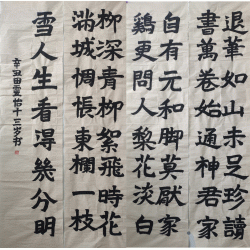 退筆如山未足珍讀
書萬卷始通神君家
自有元和脚莫厭家
鷄更問人棃花淡白
柳深青柳絮飛時花
滿城惆悵東欄一枝
雪人生看得幾分明
辛丑田靈怡十三岁书